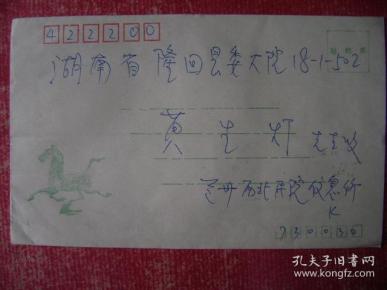 422200
湖南省隆回县委大院18-1-502
黄生灯 先生收
兰州西北民院
730030
孔夫子旧书网
www.kongfz.com